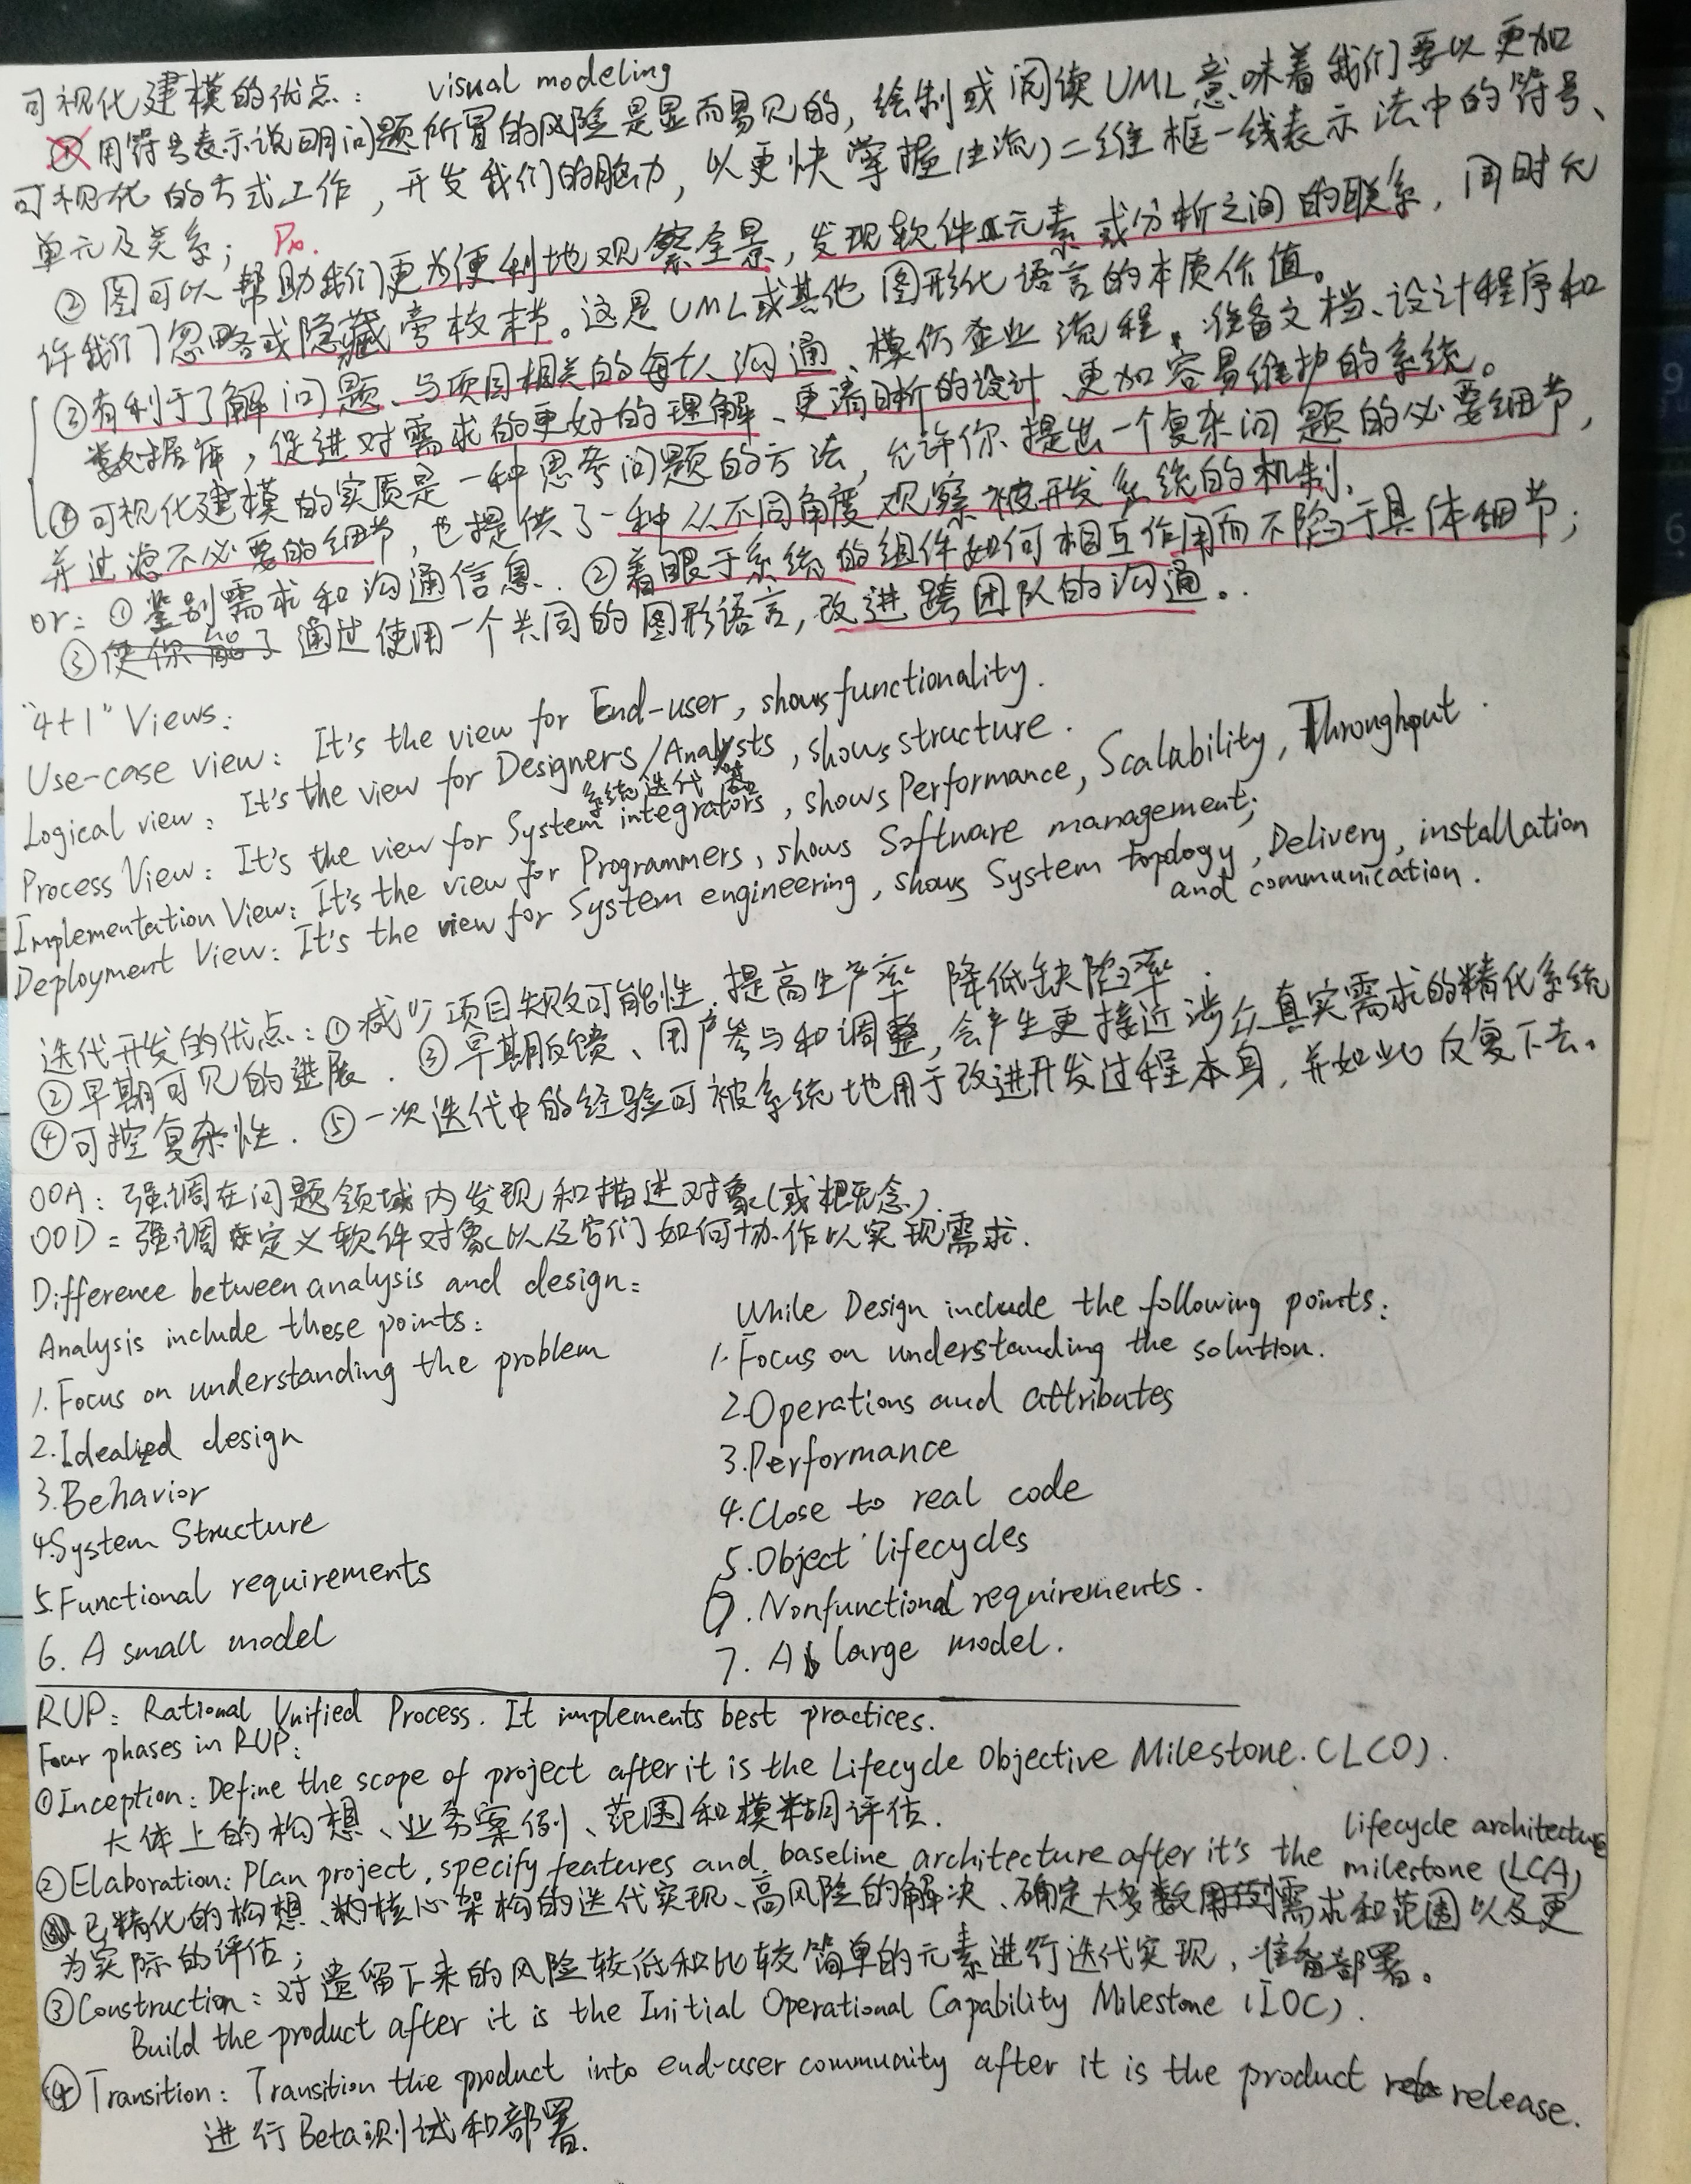 可视化建模的优点： visual modeling
① 用符号表示说明问题所冒的风险是显而易见的，绘制或阅读UML意味着我们要以更加
可视化的方式工作，开发我们的脑力，以更快掌握(主流)二维框一线表示法中的符号、
单元及关系；
②图可以帮助我们更为便利地观察全景，发现软件元素或分析之间的联系，同时允
许我们忽略或隐藏旁枝末节。这是UML或其他图形化语言的本质价值。
③有利于了解问题、与项目相关的每个人沟通、模仿企业流程、准备文档、设计程序和
数据库，促进对需求的更好的理解、更清晰的设计、更加容易维护的系统。
④可视化建模的实质是一种思考问题的方法，允许你提出一个复杂问题的必要细节，
并过滤不必要的细节，也提供了一种从不同角度观察被开发系统的机制.
or: ①鉴别需求和沟通信息. ②着眼于系统的组件如何相互作用而不陷于具体细节；
③通过使用一个共同的图形语言，改进跨团队的沟通。
"4+1" Views:
Use-case view: It's the view for End-user, shows functionality.
Logical view: It's the view for Designers/Analysts, shows structure.
系统迭代器
Process View: It's the view for System integrators, shows Performance, Scalability, Throughput.
Implementation View: It's the view for Programmers, shows Software management;
Deployment View: It's the view for System engineering, shows System topology, Delivery, installation
and communication.
迭代开发的优点：①减少项目失败可能性.提高生产率 降低缺陷率.
②早期可见的进展. ③早期反馈、用户参与和调整，会产生更接近涉众真实需求的精化系统
④可控复杂性. ⑤一次迭代中的经验可被系统地用于改进开发过程本身，并如此反复下去。
OOA: 强调在问题领域内发现和描述对象(或概念).
OOD: 强调定义软件对象以及它们如何协作以实现需求.
Difference between analysis and design:
Analysis include these points:
1. Focus on understanding the problem
2. Idealized design
3. Behavior
4. System Structure
5. Functional requirements
6. A small model
While Design include the following points:
1. Focus on understanding the solution.
2. Operations and attributes
3. Performance
4. Close to real code
5. Object lifecycles
6. Nonfunctional requirements.
7. A large model.
RUP: Rational Unified Process. It implements best practices.
Four phases in RUP:
①Inception: Define the scope of project after it is the Lifecycle Objective Milestone. (LCO).
大体上的构想、业务案例、范围和模糊评估.
②Elaboration: Plan project, specify features and baseline architecture after it's the lifecycle architecture milestone (LCA)
已精化的构想、核心架构的迭代实现、高风险的解决、确定大多数需求和范围以及更
为实际的评估；
③Construction: 对遗留下来的风险较低和比较简单的元素进行迭代实现，准备部署。
Build the product after it is the Initial Operational Capability Milestone (IOC).
④Transition: Transition the product into end-user community after it is the product release.
进行Beta测试和部署.